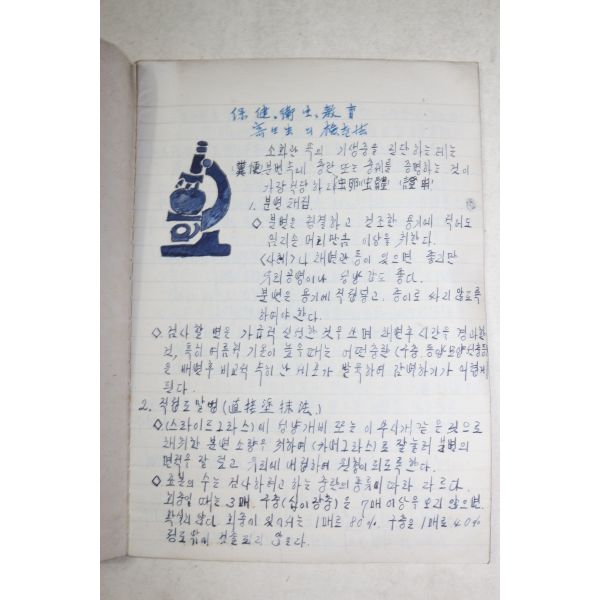 保健.衛生.教育
寄生虫 의 検査法
소화관 속의 기생충을 진단하는데는
糞便 분변속에 충란 또는 충체를 증명하는 것이
가장 적당하다 虫卵 虫體 證明
1. 분변 채집
◇ 분변은 청결하고 건조한 용기에 적어도
엄지손 머리만큼 이상을 취한다.
<샤레>나 채변관 등이 있으면 좋지만
유리공병이나 성냥갑도 좋다.
분변은 용기에 직접넣고, 종이로 싸지 않도록
하여야 한다.
◇ 검사할 변은 가급적 신선한 것을 쓰며 채변후 시간을 경과한
것, 특히 여름철 기온이 높을때는 어떤충란 (구충. 동양모양선충등)
은 배변후 비교적 속히 난세포가 발육하여 감별하기가 어렵게
된다.
2. 직접도말법 (直接塗抹法)
◇ (스라이드그라스)에 성냥개비 또는 이쑤시개 같은 것으로
채취한 분변 소량을 취하여 <카버그라스>로 잘눌러 분변의
면적을 잘 펴고 하도록 한다.
◇ 표본의 수는 검사하려고 하는 충란의 종류에 따라 다르다.
회충일 때는 3매, 구충(십이장충)은 7매이상을 보지 않으면
확실치 않다. 회충이 있어서는 1매로 80%. 구충은 1매로 40%
정도밖에 검출되지 않는다.